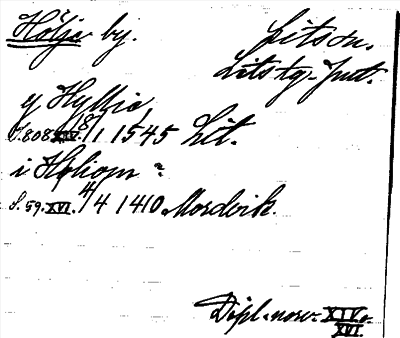 Hölje by.
Lits sn.
Lits tg. Jmt.
y Hyllia,
S. 808 XIV. 18/1 1545 Lit.
i Höliom ?
S. 59. XVI. 4/4 1410 Mordvik.
Dipl. norv. XIV o.
XVI.